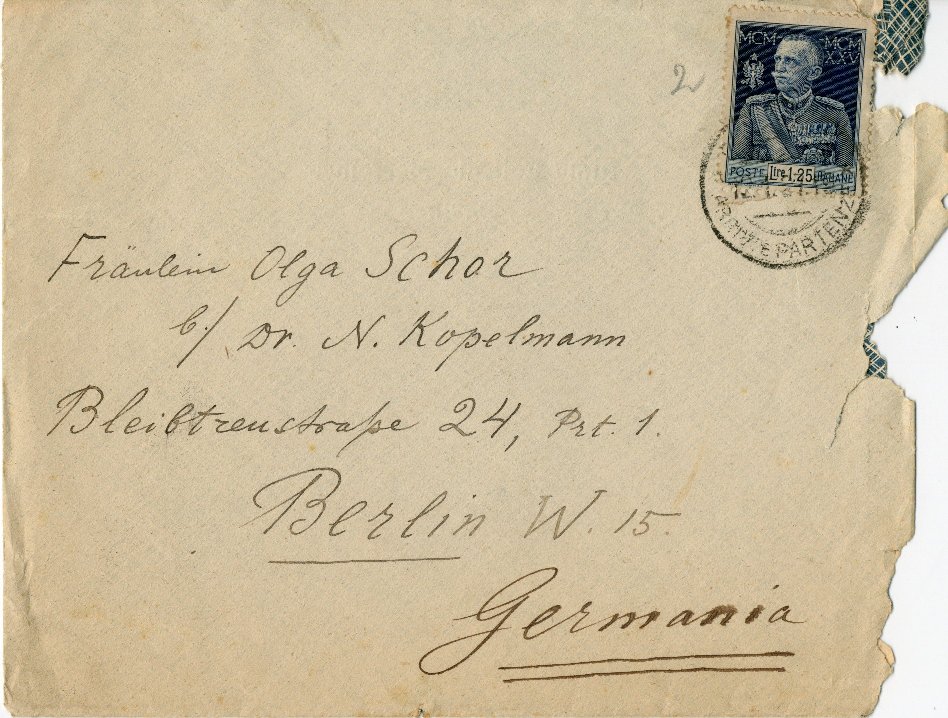 2
MCM MCM
XXV
POSTE Lire 1.25 ITALIANE
PARTENZE
Fräulein Olga Schor
b./ Dr. N. Kopelmann
Bleibtreustraße 24, Prt. 1.
Berlin W. 15.
Germania